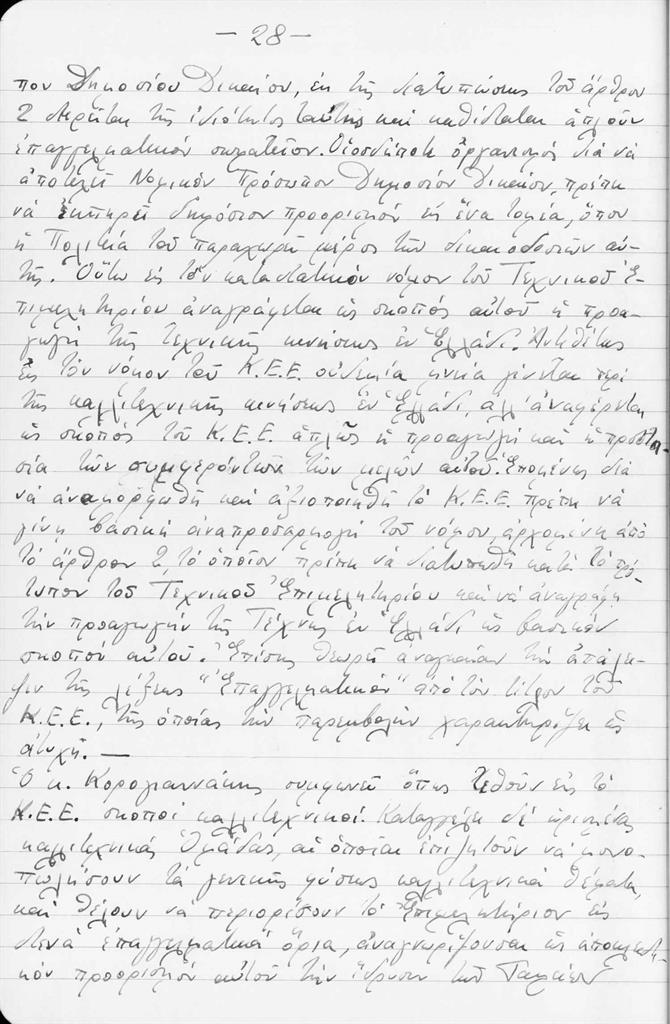 - 28 -
πον Δημοσίου Δικαίου, ἐκ τῆς διατυπώσεως τοῦ ἄρθρου
2 στερεῖται τῆς ἰδιότητος ταύτης καὶ καθίσταται ἁπλοῦν
ἐπαγγελματικόν σωματεῖον. Οἱοσδήποτε ὀργανισμός διά νά
ἀποτελῇ Νομικόν Πρόσωπον Δημοσίου Δικαίου, πρέπει
νά ἐκπληροῖ δημόσιον προορισμόν εἰς ἕνα τομέα, ὅπου
ἡ Πολιτεία τοῦ παραχωρεῖ μέρος τῶν δικαιοδοσιῶν αὐ-
τῆς. Οὕτω εἰς τόν καταστατικόν νόμον τοῦ Τεχνικοῦ Ἐ-
πιμελητηρίου ἀναγράφεται ὡς σκοπός αὐτοῦ ἡ προα-
γωγή τῆς τεχνικῆς κινήσεως ἐν Ἑλλάδι. Ἀντιθέτως
εἰς τόν νόμον τοῦ Κ.Ε.Ε. οὐδεμία μνεία γίνεται περί
τῆς καλλιτεχνικῆς κινήσεως ἐν Ἑλλάδι, ἀλλ' ἀναφέρεται
ὡς σκοπός τοῦ Κ.Ε.Ε. ἁπλῶς ἡ προαγωγή καί ἡ προστα-
σία τῶν συμφερόντων τῶν μελῶν αὐτοῦ. Ἑπομένως διά
νά ἀναμορφωθῇ καί ἀξιοποιηθῇ τό Κ.Ε.Ε. πρέπει νά
γίνῃ βασική ἀναπροσαρμογή τοῦ νόμου, ἀρχομένη ἀπό
τό ἄρθρον 2, τό ὁποῖον πρέπει νά διατυπωθῇ κατά τό πρό-
τυπον τοῦ Τεχνικοῦ Ἐπιμελητηρίου καί νά ἀναγράφῃ
τήν προαγωγήν τῆς Τέχνης ἐν Ἑλλάδι ὡς βασικόν
σκοπόν αὐτοῦ. Ἐπίσης θεωρεῖ ἀναγκαίαν τήν ἀπάλει-
ψιν τῆς λέξεως "Ἐπαγγελματικόν" ἀπό τόν τίτλον τοῦ
Κ.Ε.Ε., τῆς ὁποίας τήν παρεμβολήν χαρακτηρίζει ὡς
ἀτυχῆ. —
Ὁ κ. Κορογιαννάκης συμφωνεῖ ὅπως τεθοῦν εἰς τό
Κ.Ε.Ε. σκοποί καλλιτεχνικοί. Καταγγέλει δέ ὡρισμένας
καλλιτεχνικάς Ὁμάδας, αἱ ὁποῖαι ἐπιζητοῦν νά μονο-
πωλήσουν τά γενικῆς φύσεως καλλιτεχνικά θέματα,
καί θέλουν νά περιορίσουν τό Ἐπιμελητήριον εἰς
στενά ἐπαγγελματικά ὅρια, ἀναγνωρίζουσαι ὡς ἀποκλειστι-
κόν προορισμόν αὐτοῦ τήν ἵδρυσιν τοῦ Ταμείου